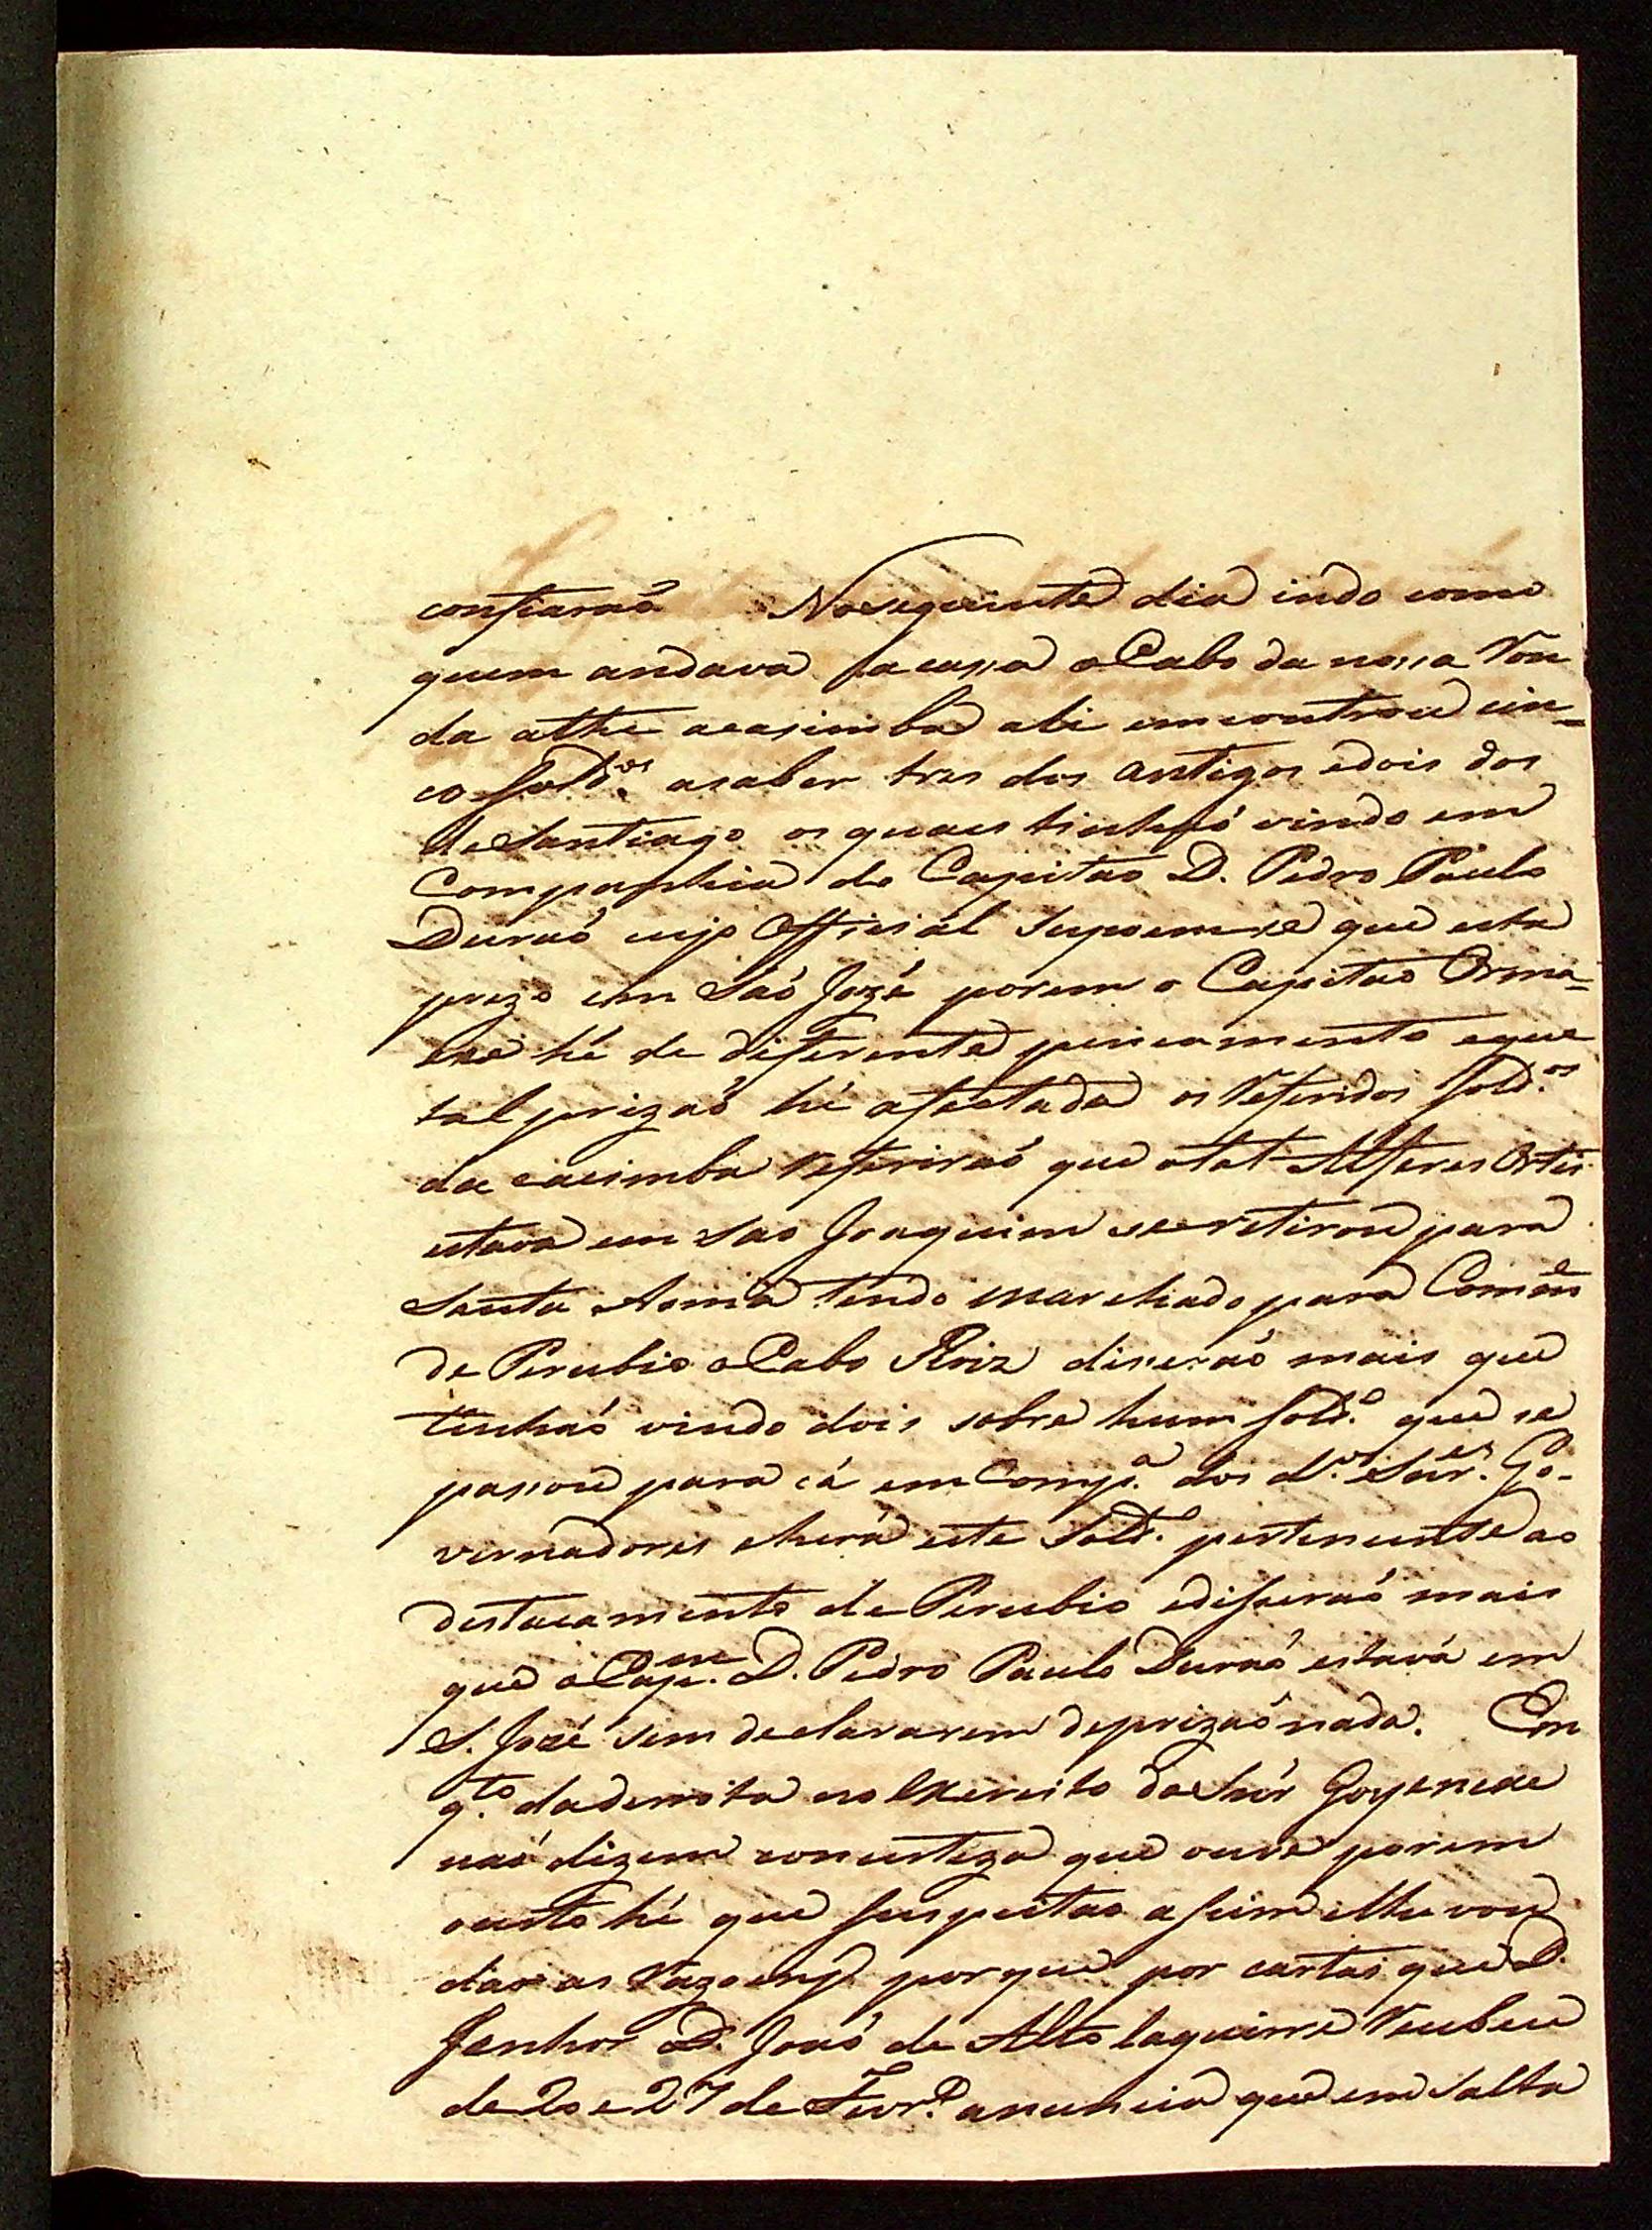 confiaraó Noseguinte dia indo como
quem andava facassa o Cabo da nossa Ron
da athe acasimba ali emcontrou cin=
co Sold.os asaber tres dos antigos edois dos
de Santiago os quaes tinhaó vindo em
Companhia do Capitao D. Pedro Paulo
Duraó cujo Official Supoemse que esta
prezo em Saó Jozé porem o Capitao Orma=
exe hé de diferente pençamento eque
tal prizaó hé afectada os Referidos Sold.os
da cacimba Referiraó que otal Alferes Ortis
estava em Sao Joaquim se retirou para
Santa Anna tendo marchado para Com.e
de Perubio o Cabo Roiz diseraó mais que
tinhaó vindo dois sobre hum Sold.o que se
passou para cá em Comp.a dos d.os Snr.es Go-
vernadores ehera este Sold.o pertencente ao
destacamento de Perubio edisseraó mais
que o Cap.m D. Pedro Paulo Duraó estavá em
S. Jozé sem declararem deprizaó nada. Em
q.to daderrota no Exercito do Snr Goyeneche
naó dizem concerteza que ouve porem
certo hé que suspeitao a sim e lhe vou
dar as Razoens porque por cartas que D.
Senhor D. Joaó de Alto laguirre Recebeu
de 20 e 27 de Fevr.o anuncia que em Salta